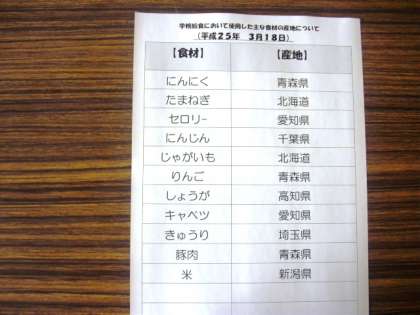 学校給食において使用した主な食材の産地について
(平成２５年　３月１８日)
【食材】 【産地】
にんにく 青森県
たまねぎ 北海道
セロリー 愛知県
にんじん 千葉県
じゃがいも 北海道
りんご 青森県
しょうが 高知県
キャベツ 愛知県
きゅうり 埼玉県
豚肉 青森県
米 新潟県